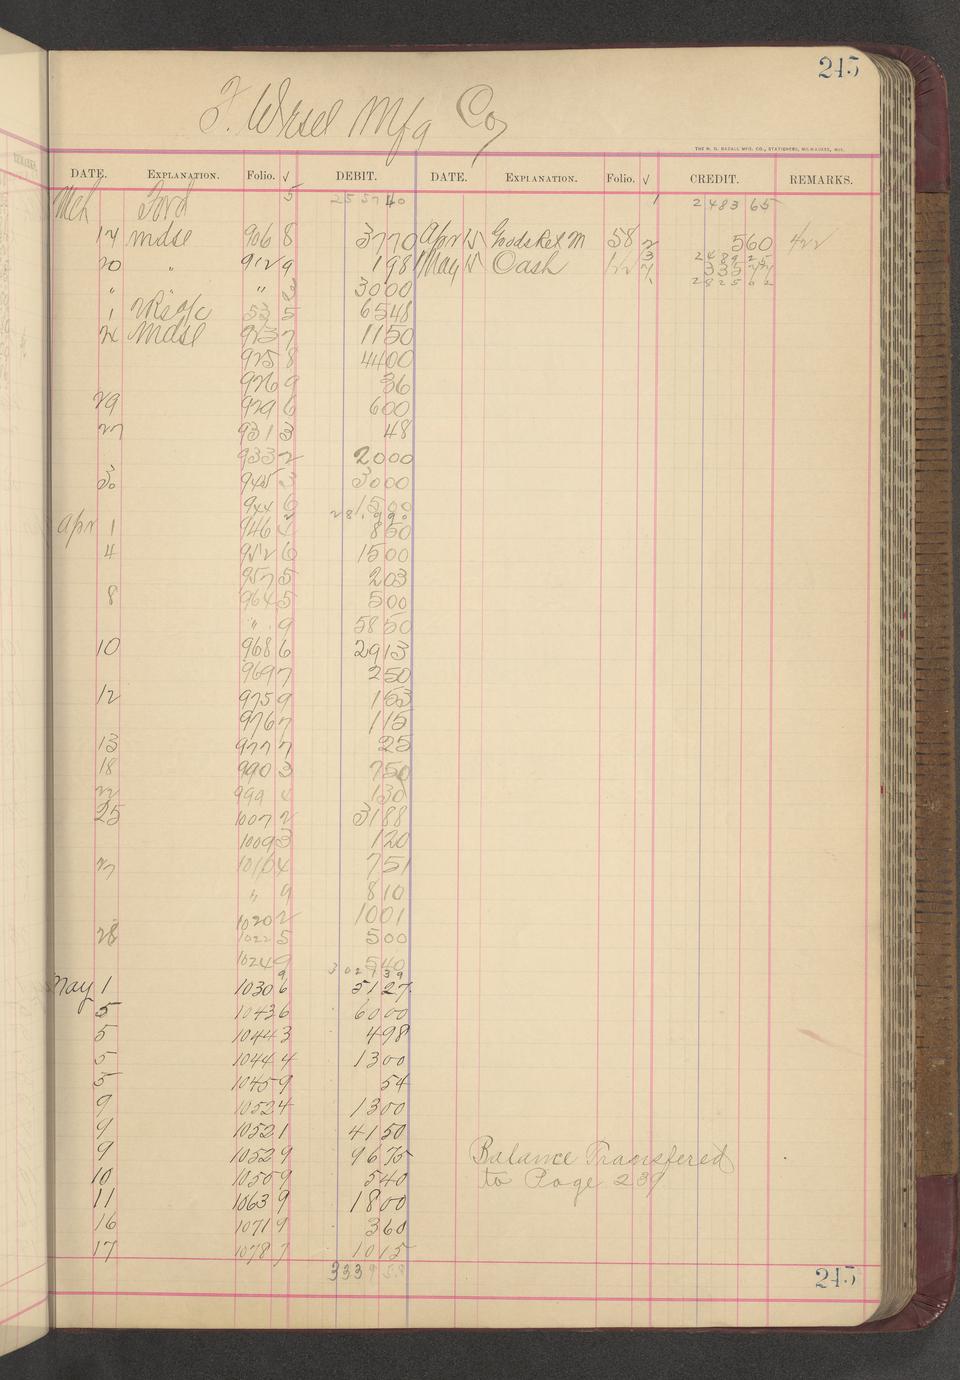 245
F. Wesel Mfg Co,
THE H. G. RAZALL MFG. CO., STATIONERS, MILWAUKEE, WIS.
DATE. EXPLANATION. Folio. √ DEBIT. DATE. EXPLANATION. Folio. √ CREDIT. REMARKS.
Mch Ford 5 2557 40 1 2483 65
14 mdse 906 8 3770 Apr 15 Goods Ret M 58 2 560 4/22
3 2489 25
20 " 912 9 1981 May 15 Cash 122 7 335 77
" " 3 3000 2825 02
1 53 5 6548
24 Mdse 923 7 1150
925 8 4400
926 9 36
29 929 6 600
27 931 3 48
933 2 2000
30 945 3 3000
944 6 1500
281 9 90
Apr 1 946 850
4 952 6 1500
957 5 203
8 964 5 500
" 9 5850
10 968 6 2913
969 7 250
12 975 9 153
976 7 115
13 977 7 25
18 990 3 750
22 999 4 130
25 1007 2 3188
1009 3 120
27 1010 4 751
" 9 810
1020 2 1001
28 1022 5 500
1024 9 540
9 3021 39
May 1 1030 6 5127
5 1043 6 6000
5 1044 3 498
5 1044 4 1300
5 1045 9 54
9 1052 4 1300
9 1052 1 4150
9 1052 9 9675 Balance Transfered
10 1050 9 540 to Page 239
11 1063 9 1800
16 1071 9 360
17 1078 7 1015
3339 58
245